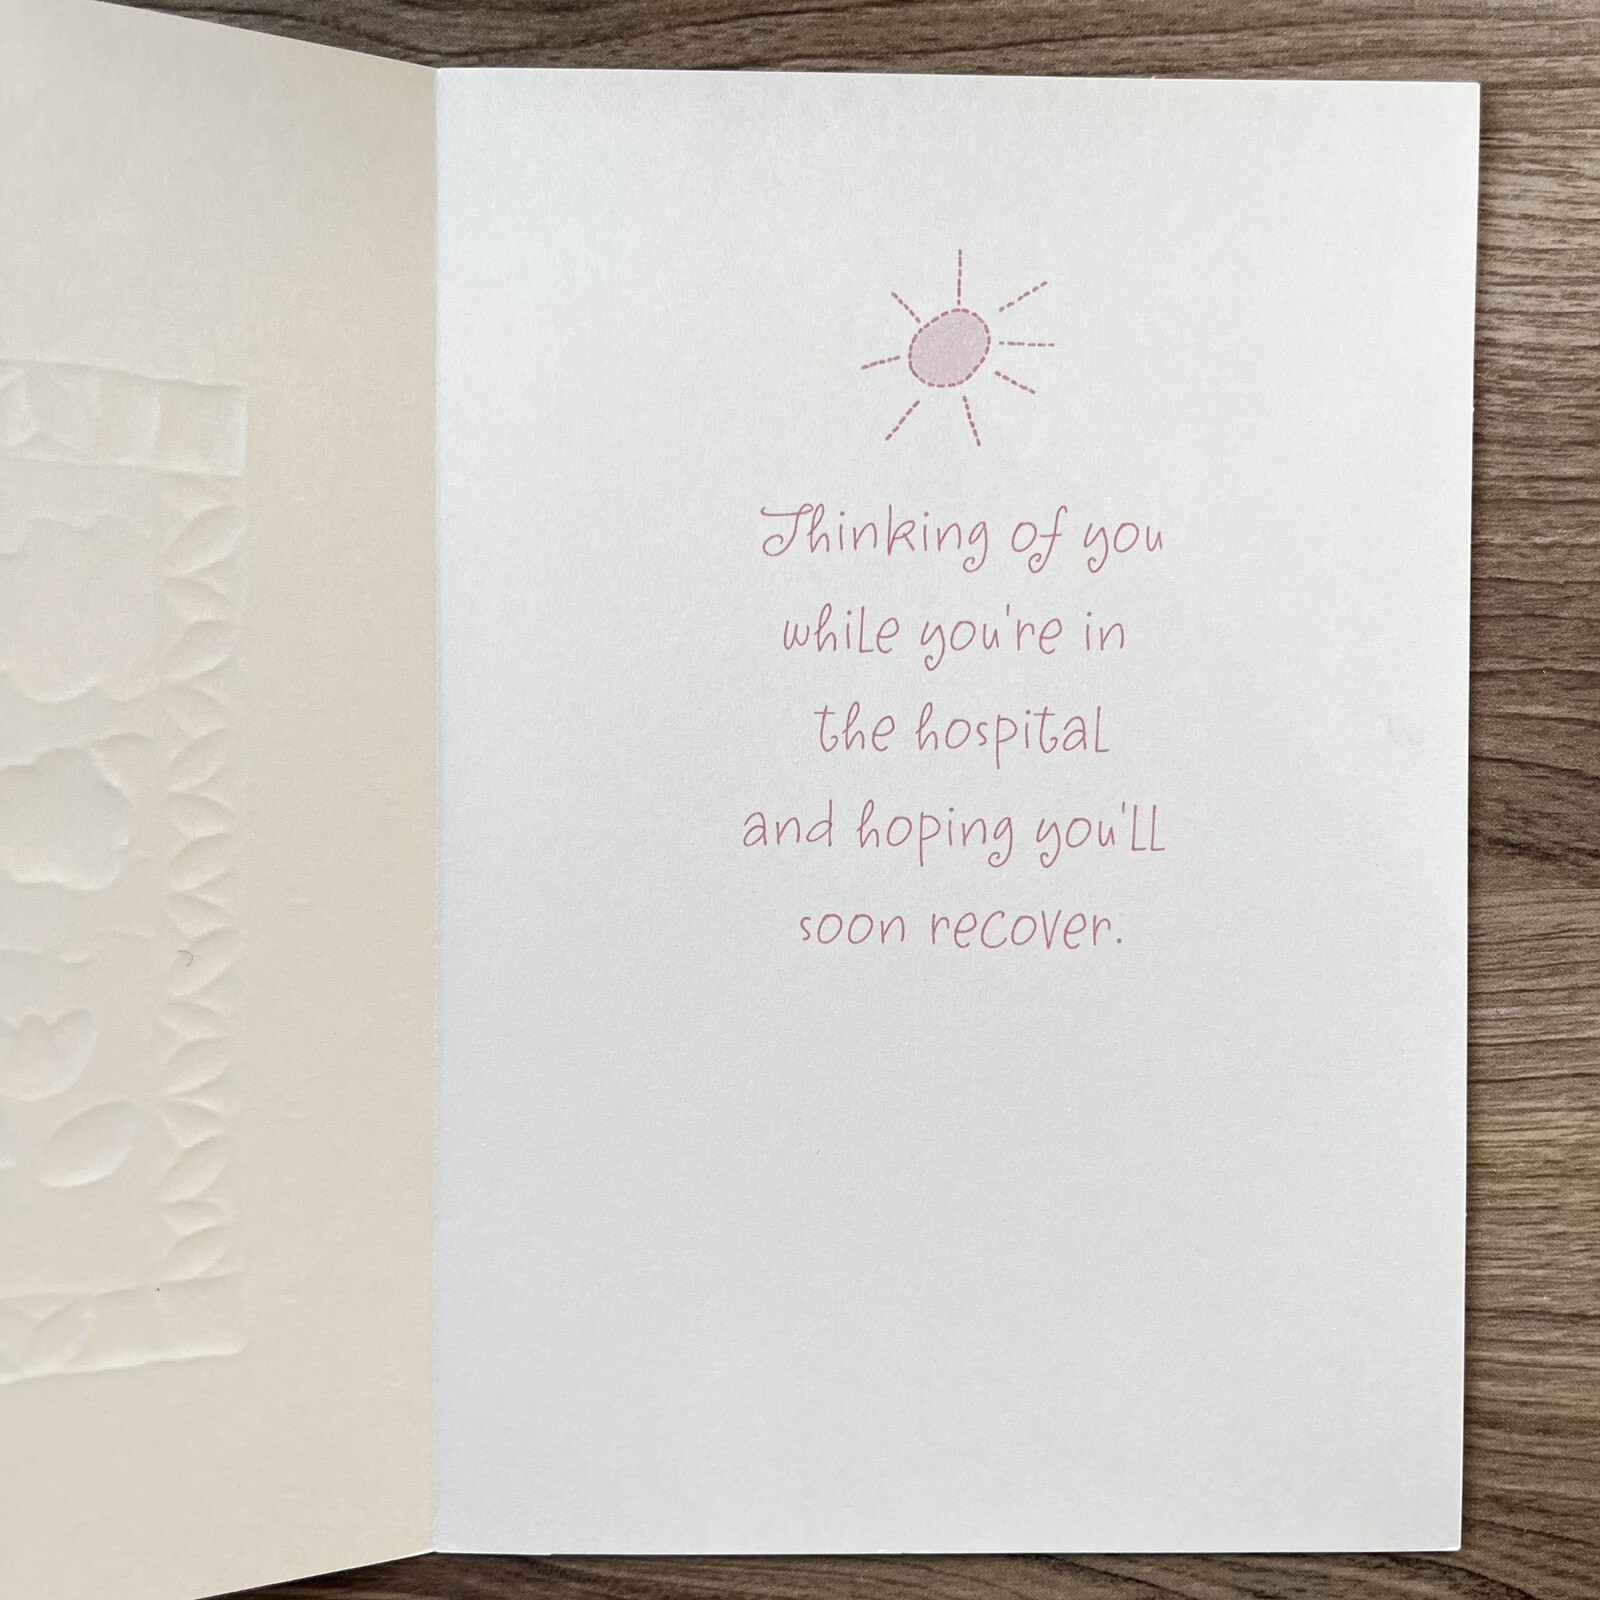 Thinking of you
while you're in
the hospital
and hoping you'll
soon recover.